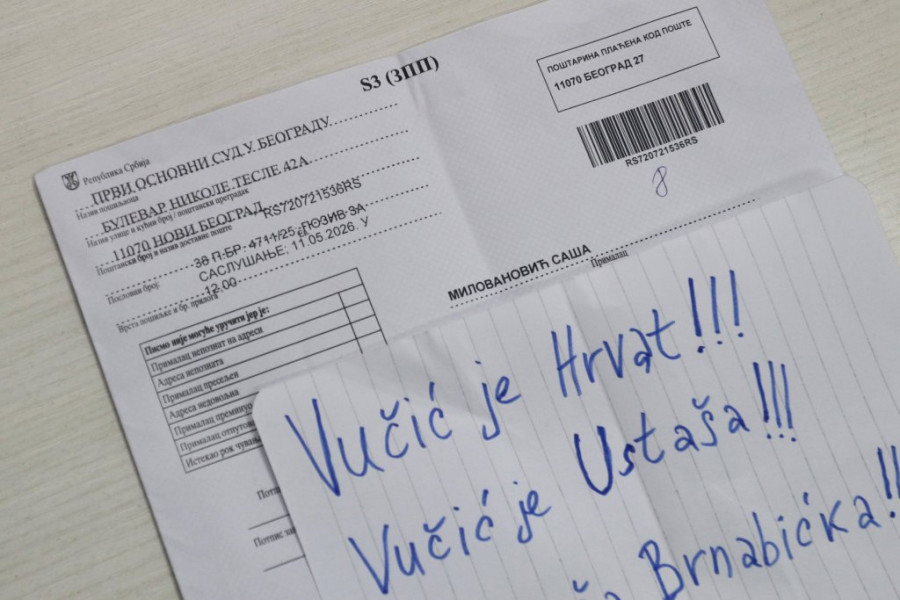 S3 (ЗПП)
Република Србија
ПРВИ ОСНОВНИ СУД У БЕОГРАДУ
Назив пошиљаоца
БУЛЕВАР НИКОЛЕ ТЕСЛЕ 42А
Назив улице и кућни број / поштански преградак
11070 НОВИ БЕОГРАД
RS720721536RS
Поштански број и назив доставне поште
38 П.БР. 4711/25, ПОЗИВ ЗА
САСЛУШАЊЕ: 11.05.2026. У
12.00
Пословни број:
Врста пошиљке и бр. прилога
Писмо није могуће уручити јер је:
Прималац непознат на адреси
Адреса непозната
Прималац пресељен
Адреса недовољна
Прималац преминуо
Прималац отпутов
Истекао рок чувањ
Потп
Потпис за
ПОШТАРИНА ПЛАЋЕНА КОД ПОШТЕ
11070 БЕОГРАД 27
RS720721536RS
8
МИЛОВАНОВИЋ САША
Прималац
Vučić je Hrvat!!!
Vučić je Ustaša!!!
Vučić je Brnabićka!!